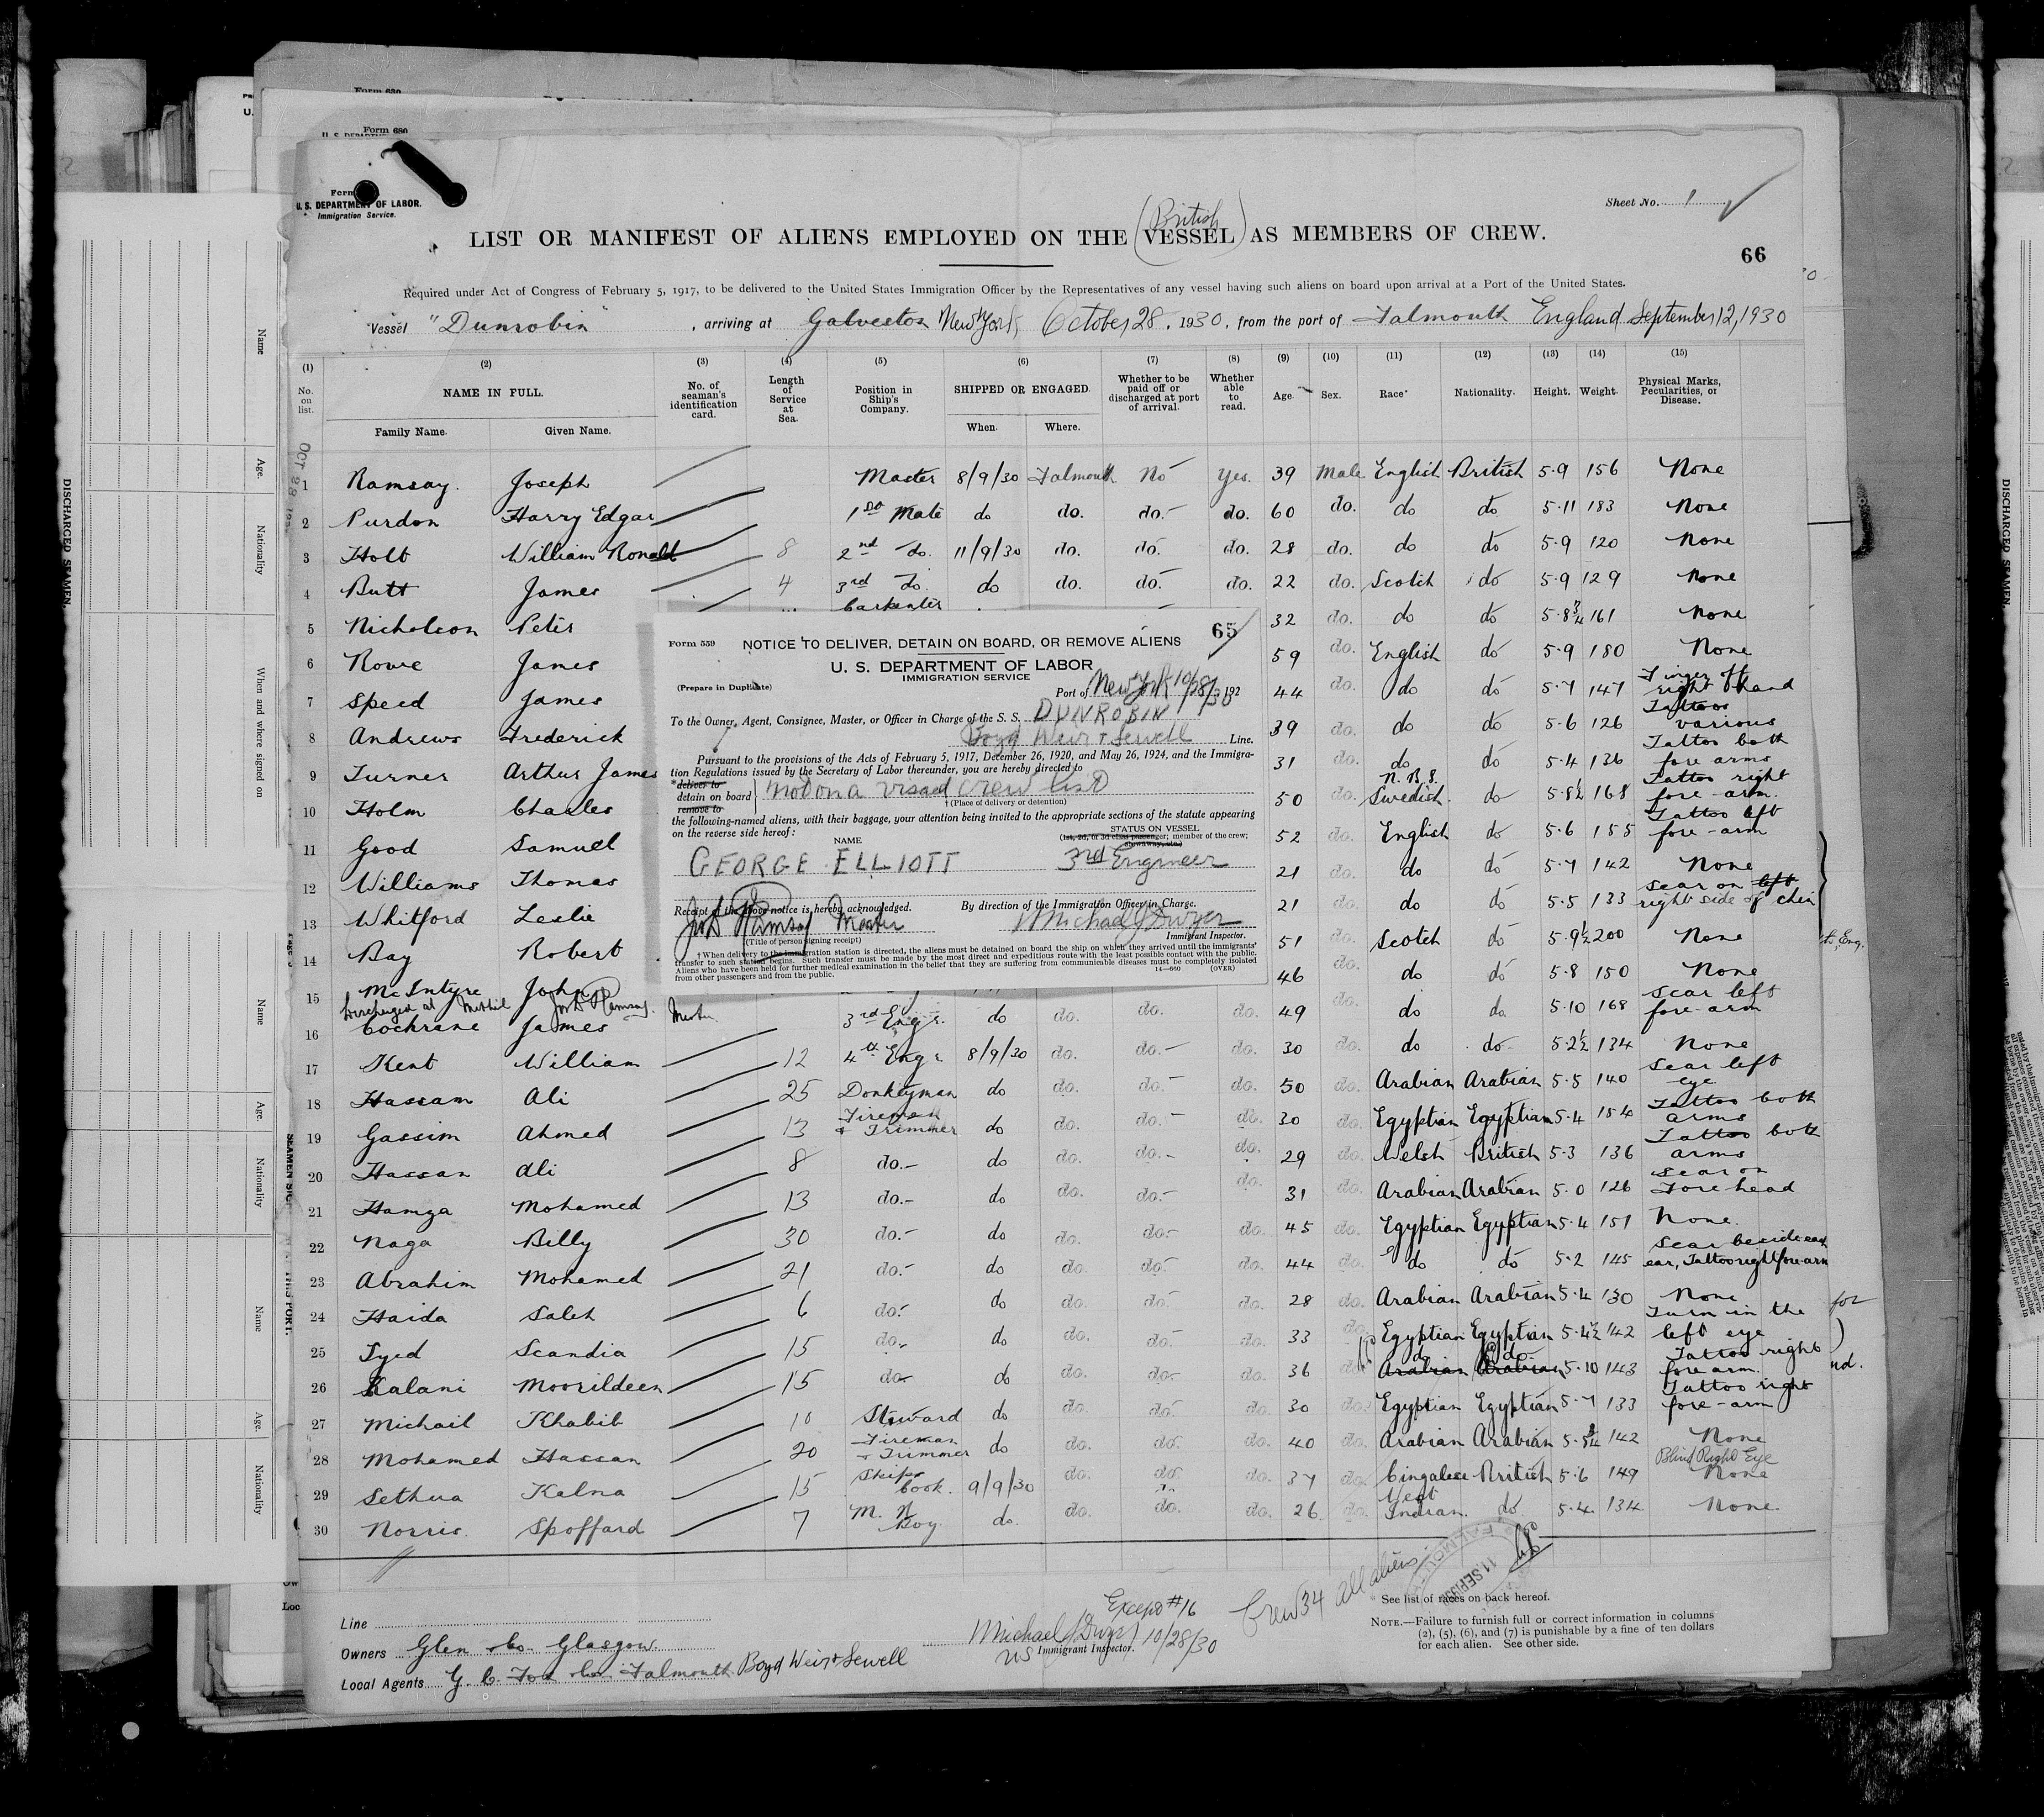 Form 680
U. S. DEPARTMENT OF LABOR.
Immigration Service.
Sheet No. 1
(British)
LIST OR MANIFEST OF ALIENS EMPLOYED ON THE VESSEL AS MEMBERS OF CREW.
66
Required under Act of Congress of February 5, 1917, to be delivered to the United States Immigration Officer by the Representatives of any vessel having such aliens on board upon arrival at a Port of the United States.
Vessel "Dunrobin", arriving at Galveston New York, October 28, 1930, from the port of Falmouth England September 12, 1930
(1) (2) (3) (4) (5) (6) (7) (8) (9) (10) (11) (12) (13) (14) (15)
No. on list. NAME IN FULL. No. of seaman's identification card. Length of Service at Sea. Position in Ship's Company. SHIPPED OR ENGAGED. Whether to be paid off or discharged at port of arrival. Whether able to read. Age. Sex. Race* Nationality. Height. Weight. Physical Marks, Pecularities, or Disease.
Family Name. Given Name. When. Where.
OCT 28
1 Ramsay. Joseph Master 8/9/30 Falmouth No Yes. 39 Male English British 5-9 156 None
2 Purdon Harry Edgar 1st Mate do do. do.- do. 60 do. do do 5-11 183 None
3 Holt William Ronald 8 2nd do. 11/9/30 do. do. do. 28 do. do do 5-9 120 None
4 Butt James 4 3rd do. do do. do.- do. 22 do. Scotch do 5-9 129 None
5 Nicholson Peter Carpenter 32 do. do do 5-8 3/4 161 None
6 Rowe James 59 do. English do 5-9 180 None
7 Speed James 44 do. do do 5-7 147 Finger off right hand
8 Andrews Frederick 39 do. do do 5-6 126 Tattoos various
9 Turner Arthur James 31 do. do do 5-4 136 Tattoo both fore arms
10 Holm Charles 50 do. Swedish. do 5-8½ 168 Tattoo right fore-arm.
11 Good Samuel 52 do. English do 5-6 155 Tattoo left fore-arm
12 Williams Thomas 21 do. do do 5-7 142 None
13 Whitford Leslie 21 do. do do 5-5 133 Scar on left right side of chin
14 Bay Robert 51 do. Scotch do 5-9½ 200 None
15 McIntyre John 46 do. do do 5-8 150 None
Discharged at Jos D Ramsay. Master
16 Cochrane James 3rd Engr. do do. do. do. 49 do. do do. 5-10 168 Scar left fore-arm
17 Kent William 12 4th Engr 8/9/30 do. do.- do. 30 do. do do- 5-2½ 134 None
18 Hassam Ali 25 Donkeyman do do. do.- do. 50 do. Arabian Arabian 5-5 140 Scar left eye
19 Gassim Ahmed 13 Fireman & Trimmer do do. do.- do. 30 do. Egyptian Egyptian 5-4 154 Tattoo both arms
20 Hassan Ali 8 do.- do do. do.- do. 29 do. Welsh British 5-3 136 Tattoo both arms
21 Hamza Mohamed 13 do.- do do. do.- do. 31 do. Arabian Arabian 5-0 126 Scar on Forehead
22 Naga Billy 30 do.- do do. do.- do. 45 do. Egyptian Egyptian 5-4 151 None.
23 Abrahim Mohamed 21 do.- do do. do.- do. 44 do. do do 5-2 145 Scar beside each ear, Tattoo right fore-arm
24 Haida Saleh 6 do. do do. do. do. 28 do. Arabian Arabian 5-4 130 None
25 Syed Scandia 15 do. do do. do.- do. 33 do. Egyptian Egyptian 5-4½ 142 Turn in the left eye
26 Kalani Moorildeen 15 do- do do. do.- do. 36 do. do do Arabian Arabian 5-10 143 Tattoo right fore arm.
27 Michail Khabib 10 Steward do do. do. do. 30 do. Egyptian Egyptian 5-7 133 Tattoo right fore-arm
28 Mohamed Hassan 20 Fireman & Trimmer do do. do. do. 40 do. Arabian Arabian 142 None
29 Sethua Kalna 15 Ships Cook. 9/9/30 do. do. do. 37 do. Cingalese British 5-6 149 Blind Right Eye None
30 Norris. Spofford 7 M. R. Boy. do. do. do. do. 26. do. West Indian. do 5-4 134 None
Form 559 NOTICE TO DELIVER, DETAIN ON BOARD, OR REMOVE ALIENS 65
U. S. DEPARTMENT OF LABOR
IMMIGRATION SERVICE
(Prepare in Duplicate)
Port of New York 10/28/30 192
To the Owner, Agent, Consignee, Master, or Officer in Charge of the S. S. DUNROBIN
Boyd Weir & Sewell Line.
Pursuant to the provisions of the Acts of February 5, 1917, December 26, 1920, and May 26, 1924, and the Immigra-
tion Regulations issued by the Secretary of Labor thereunder, you are hereby directed to
*deliver to
detain on board not on a visaed crew list
remove to
†(Place of delivery or detention)
the following-named aliens, with their baggage, your attention being invited to the appropriate sections of the statute appearing
on the reverse side hereof:
NAME
STATUS ON VESSEL
(1st, 2d, or 3d class passenger; member of the crew;
stowaway, etc.)
GEORGE ELLIOTT 3rd Engineer
Receipt of the above notice is hereby acknowledged.
By direction of the Immigration Officer in Charge.
Jos D Ramsay Master
Michael J Dwyer
(Title of person signing receipt)
Immigrant Inspector.
†When delivery to the immigration station is directed, the aliens must be detained on board the ship on which they arrived until the immigrants'
transfer to such station begins. Such transfer must be made by the most direct and expeditious route with the least possible contact with the public.
Aliens who have been held for further medical examination in the belief that they are suffering from communicable diseases must be completely isolated
from other passengers and from the public.
14—660 (OVER)
Line
Owners Glen & Co- Glasgow.
Local Agents G. C. Fox & Co. Falmouth Boyd Weir & Sewell
Except #16
Michael J Dwyer 10/28/30
US Immigrant Inspector.
Crew 34 all aliens
11 SEP 1930
* See list of races on back hereof.
NOTE.—Failure to furnish full or correct information in columns
(2), (5), (6), and (7) is punishable by a fine of ten dollars
for each alien. See other side.
DISCHARGED SEAMEN.
Name
Age.
Nationality
When and where signed on
Name
Age.
Nationality
Name
Age.
Nationality
DISCHARGED SEAMEN.